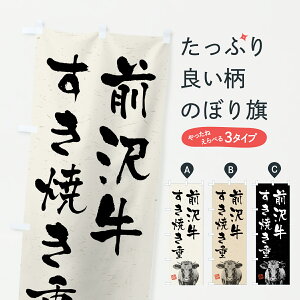 前沢牛
すき焼き重
たっぷり
良い柄
のぼり旗
やったね
えらべる3タイプ
A
B
C
前沢牛
すき焼き重
前沢牛
すき焼き重
前沢牛
すき焼き重